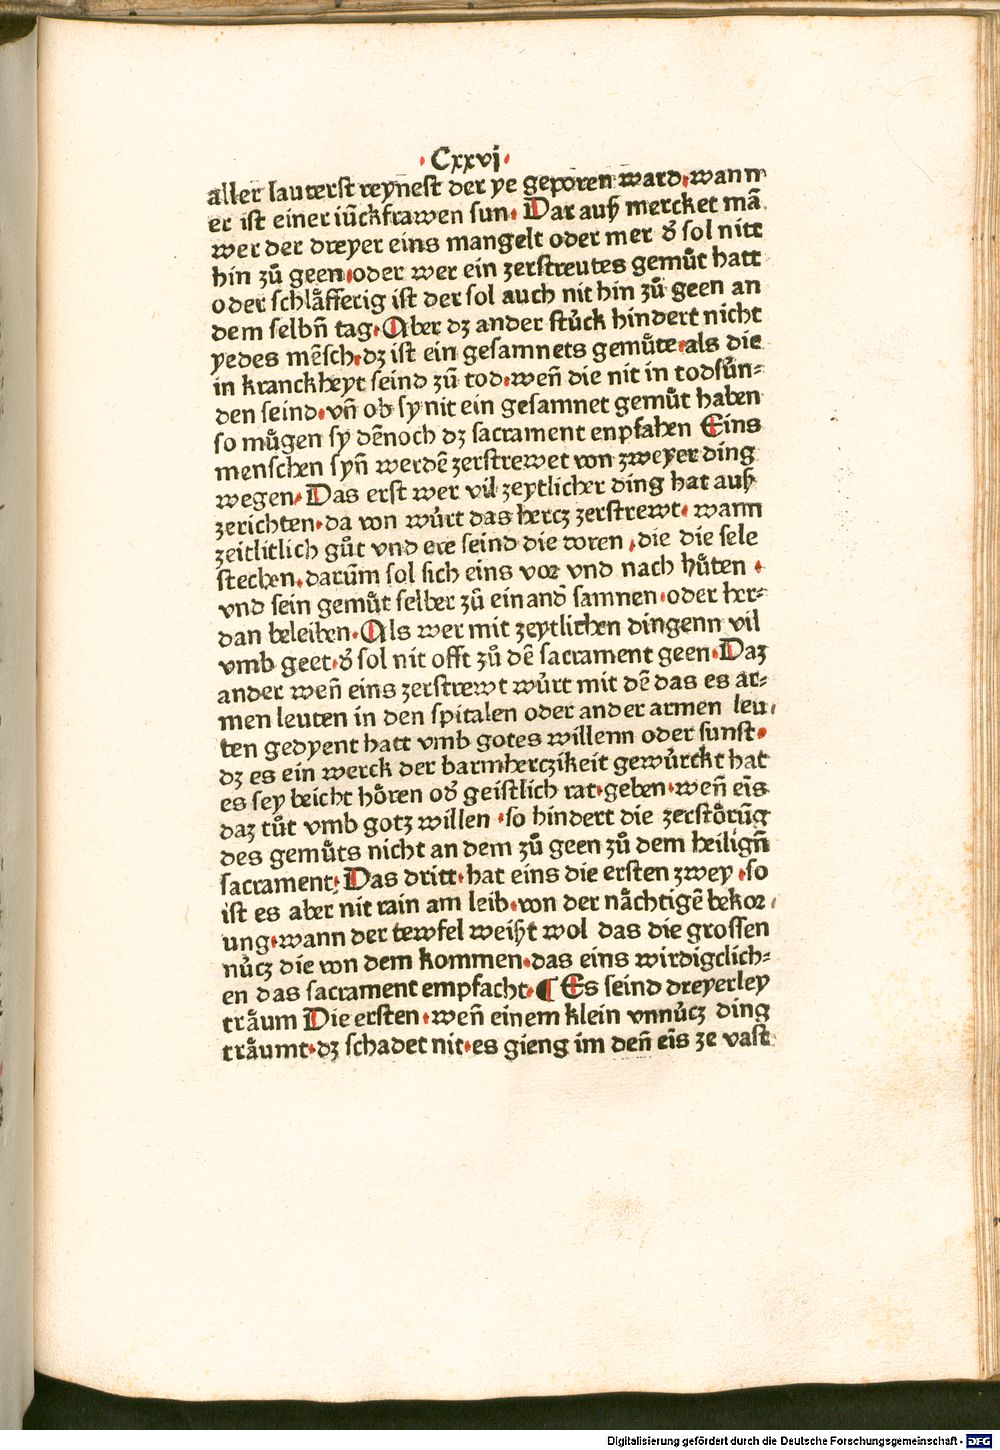 ·Cxxvj·
aller lauterst reynest der ye geporen ward·wann
er ist einer iūckfrawen sun· Dar auß mercket mā
wer der dreyer eins mangelt oder mer d̕ sol nitt
hin zů geen·oder wer ein zerstreutes gemůt hatt
oder schlåfferig ist der sol auch nit hin zů geen an
dem selbñ tag·Aber dz ander stůck hindert nicht
yedes mēsch·dz ist ein gesamnets gemůte·als die
in kranckheyt seind zů tod·weñ die nit in todsůn⸗
den seind·vñ ob sy nit ein gesamnet gemůt haben
so můgen sy dēnoch dz sacrament enpfahen Eins
menschen syñ werdē zerstrewet von zweyer ding
wegen· Das erst wer vil zeytlicher ding hat auß
zerichten·da von wůrt das hercz zerstrewt· wann
zeitlitlich gůt vnd ere seind die doren ,die die sele
stechen.darūm sol sich eins vor vnd nach hůten ·
vnd sein gemůt selber zů einand̕ samnen·oder her⸗
dan beleiben·Als wer mit zeytlichen dingenn vil
vmb geet·d̕ sol nit offt zů dē sacrament geen·Daz
ander weñ eins zerstrewt wůrt mit dē das es ar⸗
men leuten in den spitalen oder ander armen leu⸗
ten gedyent hatt vmb gotes willenn oder sunst·
dz es ein werck der barmherczikeit gewůrckt hat
es sey beicht hőren od̕ geistlich rat·geben·weñ eīs
daz tůt vmb gotz willen ·so hindert die zerstőrūg
des gemůts nicht an dem zů geen zů dem heiligñ
sacrament· Das dritt·hat eins die ersten zwey ·so
ist es aber nit rain am leib·von der nåchtigē bekor⸗
ung·wann der tewfel weißt wol das die grossen
nůcz die von dem kommen·das eins wirdigclich⸗
en das sacrament empfacht·¶ Es seind dreyerley
tråum Die ersten·weñ einem klein vnnůcz ding
tråumt·dz schadet nit·es gieng im deñ eīs ze vast
Digitalisierung gefördert durch die Deutsche Forschungsgemeinschaft - DFG